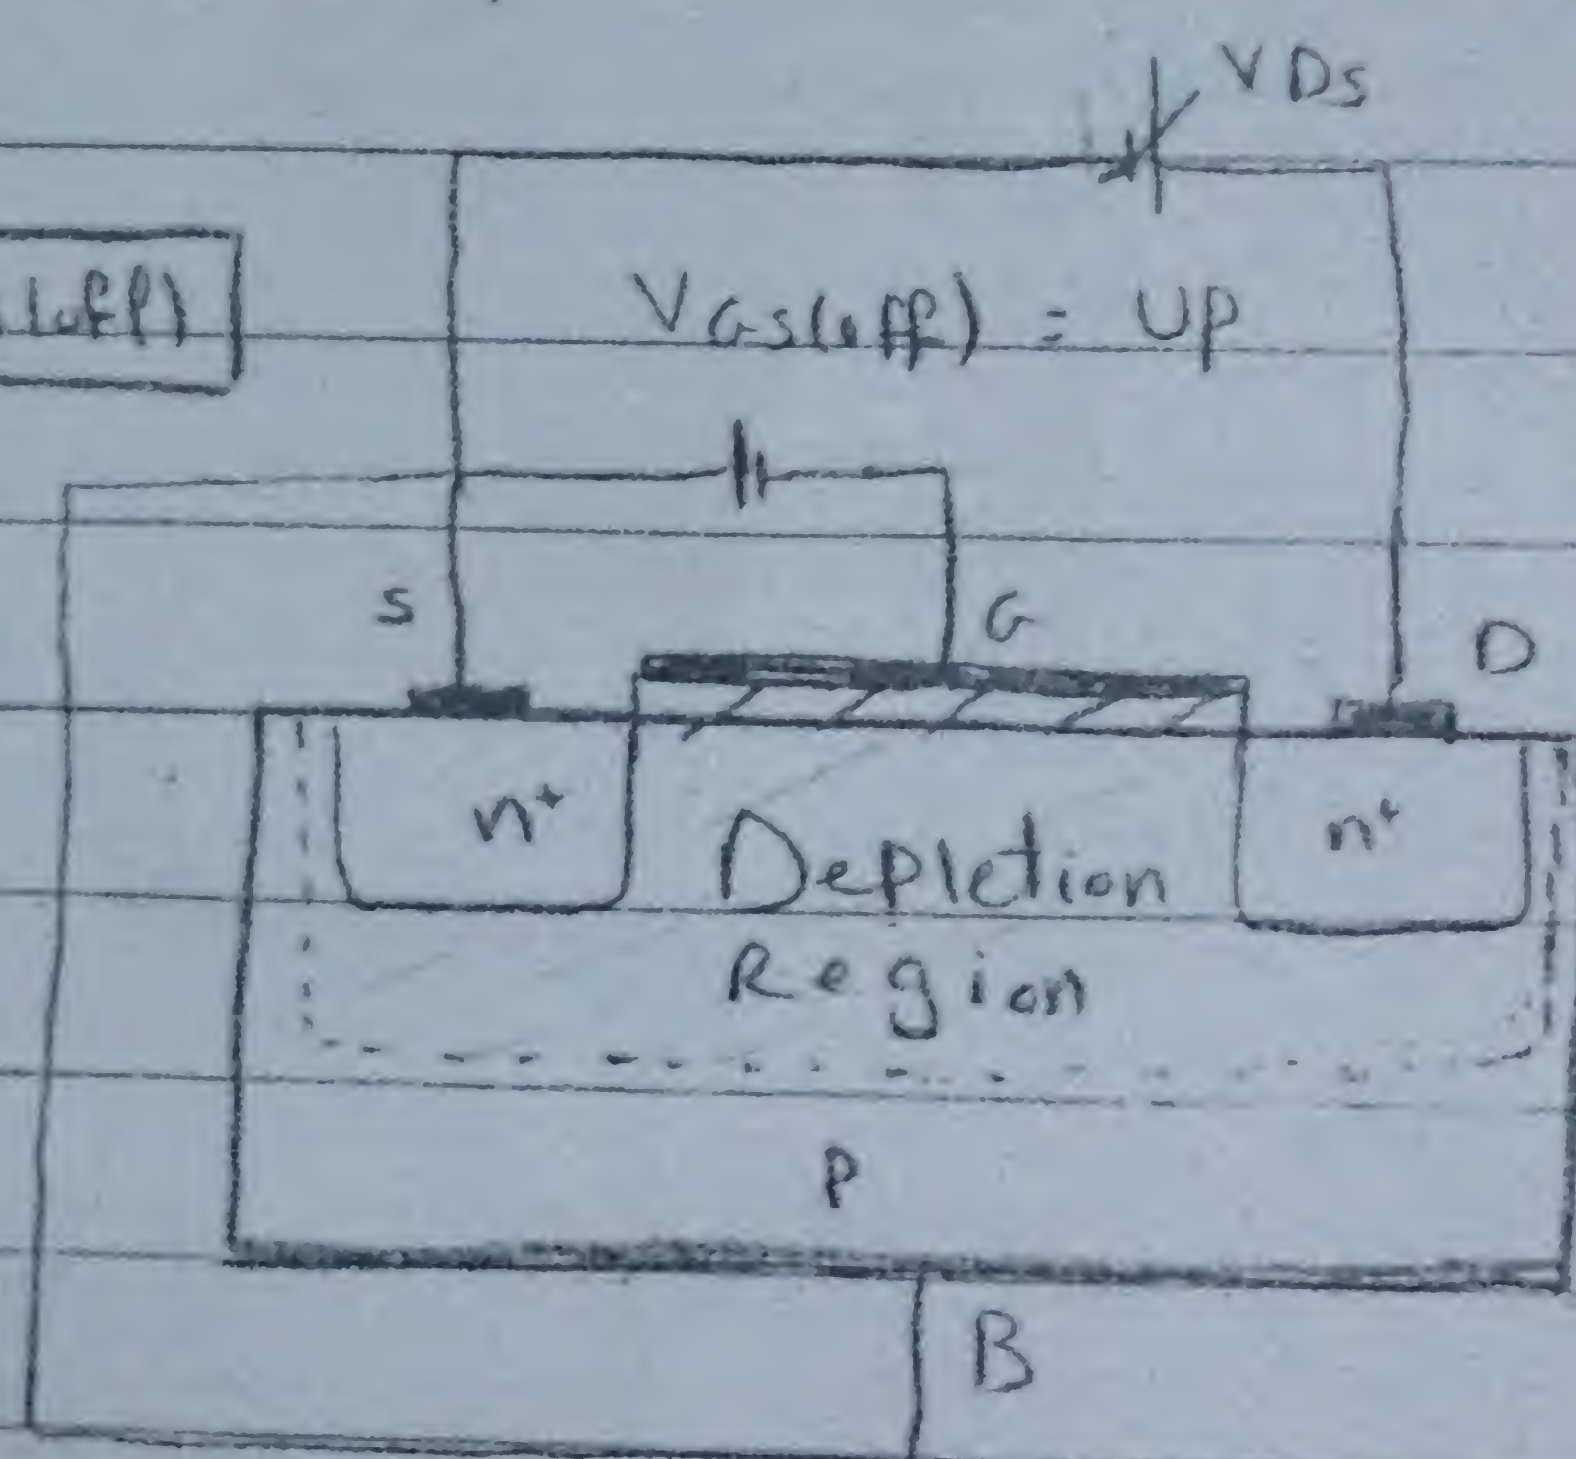 VDS
(off)
VGS(off) = UP
S
G
D
n+
Depletion
n+
Region
P
B